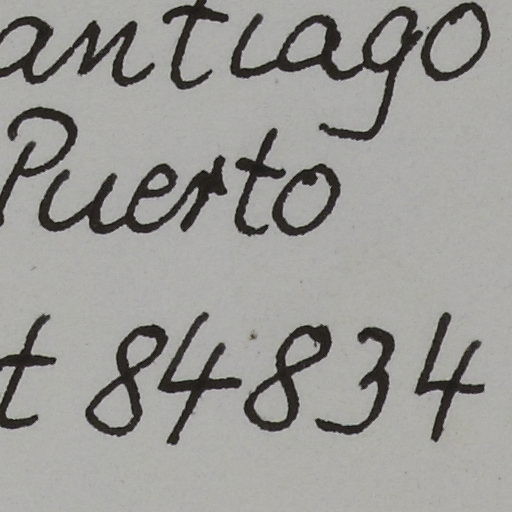 antiago
Puerto
t 84834